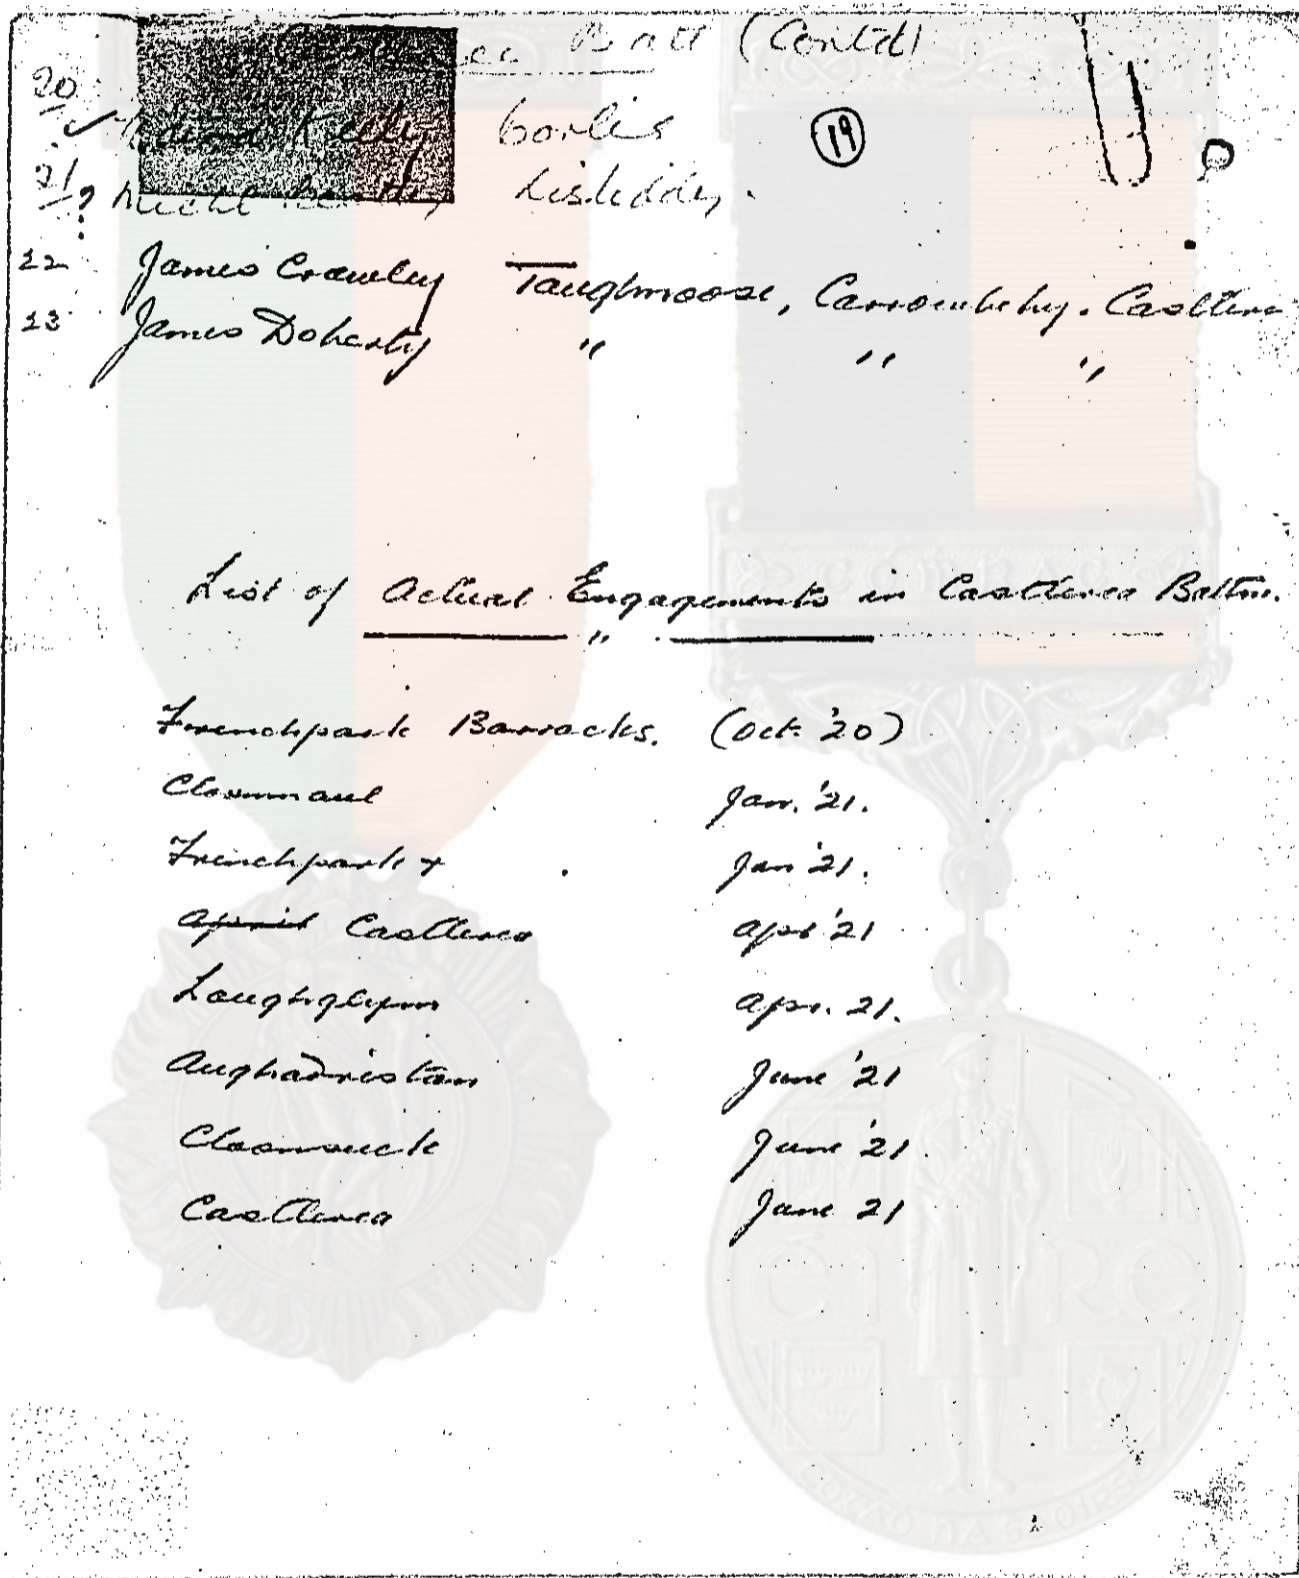 Batt (Contd)
20
Kelly Corlis
19
21 ? Michl Lisliddy.
22 James Crawley Taughmoose, Carrowbehy. Castlerea
23 James Doherty " " "
List of Actual Engagements in Castlerea Battn.
"
Frenchpark Barracks. (Oct. '20)
Cloonmaul Jan. '21.
Frenchpark + Jan '21.
April Castlerea Apr '21
Loughglynn Apr. 21.
Aughadristan June '21
Cloonsuck June '21.
Castlerea June 21
ÉIRE
COGADH NA SAOIRSE